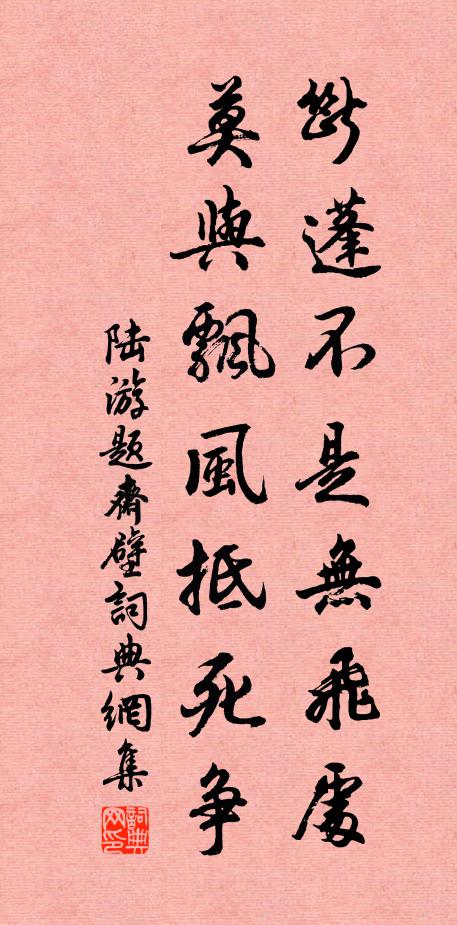 斷蓬不是無飛處
莫與飄風抵死争
陆游题齋壁詞典網集
詞典网印